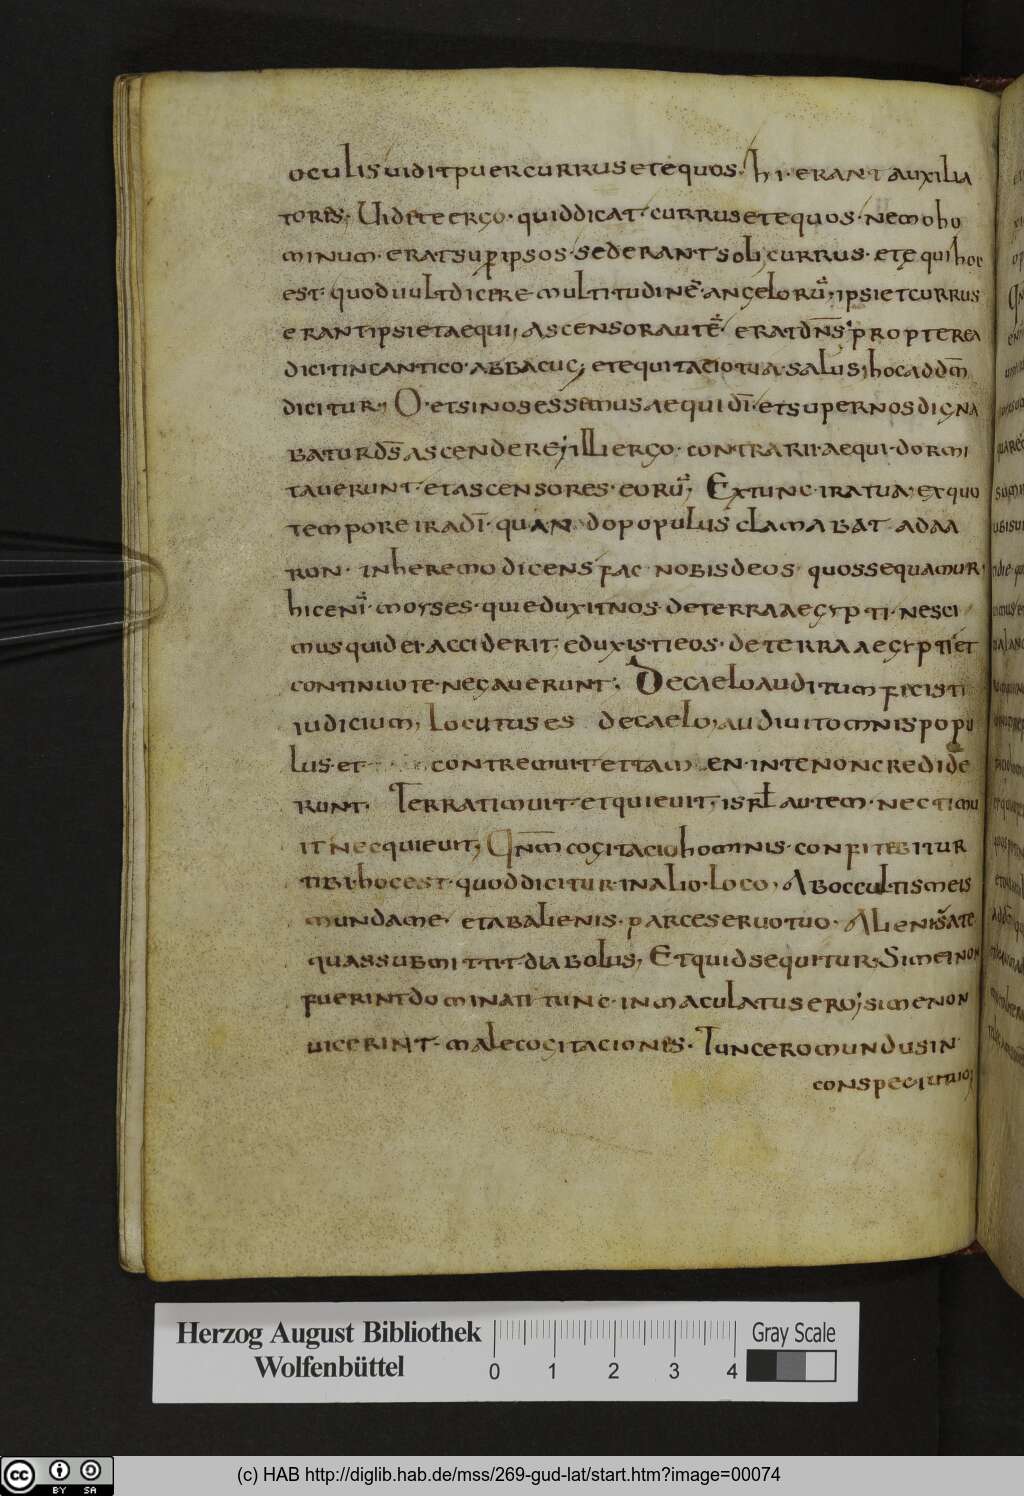 oculis uidit puer currus et equos. hi erant auxilia
tores, Uidete ergo quid dicat currus et equos nemo ho
minum erat sup ipsos sed erant soli currus et equi hoc
est quod uult dicere multitudinē angelorū, ipsi et currus
erant ipsi et aequi, ascensor autē erat dn̄s propterea
dicit in cantico abbacuc, et equitacio tua salus, hoc ad dm̄
dicitur, O et si nos essemus aequi dī et super nos digna
batur ds̄ ascendere, illi ergo contrarii aequi dormi
tauerunt et ascensores eorū, Ex tunc ira tua, ex quo
tempore ira dī quando populus clamabat ad aa
ron in heremo dicens fac nobis deos quos sequamur
hic enī moyses qui eduxit nos de terra aegypti nesci
mus quid ei acciderit eduxisti eos de terra aegypti et
continuo te negauerunt. De caelo auditum fecisti
iudicium, locutus es de caelo, audiuit omnis popu
lus et contremuit et tamen in te non credide
runt. Terra timuit et quieuit, isrl autem nec timu
it nec quieuit, Qnm̄ cogitacio hominis confitebitur
tibi hoc est quod dicitur in alio loco, Ab occultis meis
munda me et ab alienis parce seruo tuo. Alienis a te
quas submittit diabolus, Et quid sequitur, Si mei non
fuerint dominati tunc inmaculatus ero, si me non
uicerint male cogitaciones. Tunc ero mundus in
conspectu tuo,
Herzog August Bibliothek
Wolfenbüttel
0 1 2 3 4
Gray Scale
cc BY SA
(c) HAB http://diglib.hab.de/mss/269-gud-lat/start.htm?image=00074